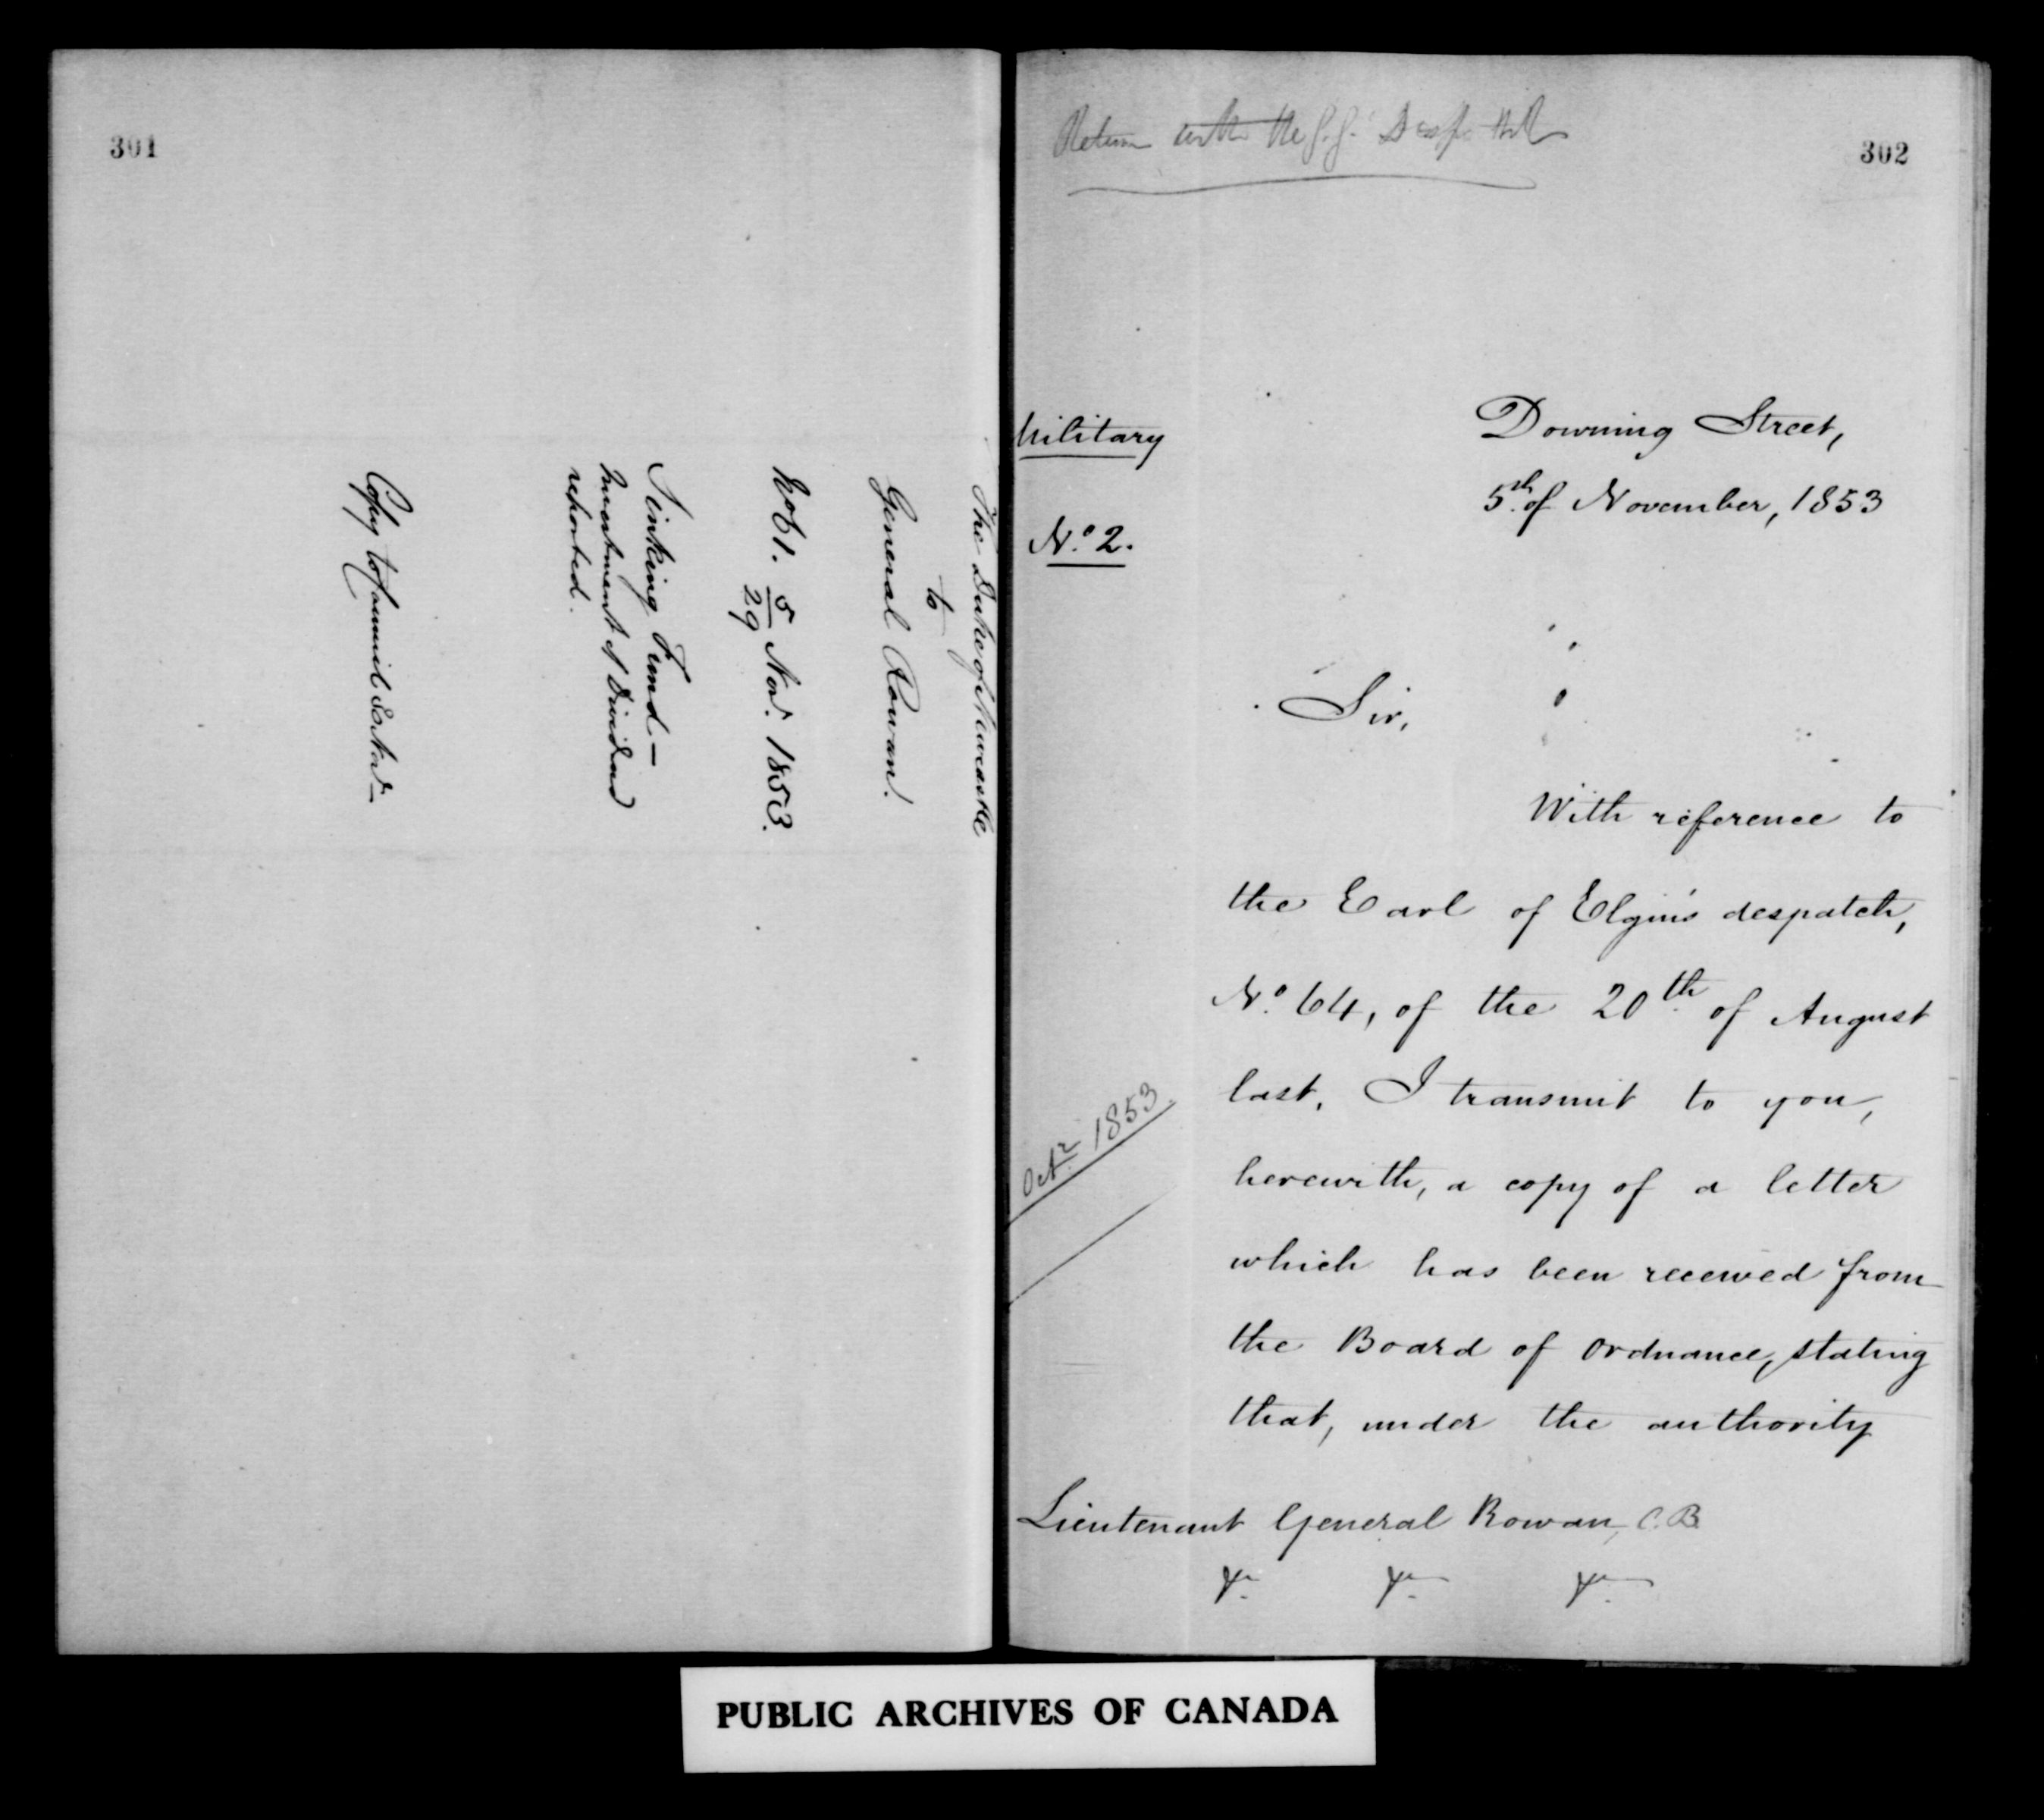 301
The Duke of Newcastle
to
General Rowan.
No 1. 5/29 Nov. 1853.
Sinking Fund—
Investment of Dividend
reported.
Copy to Council &
302
Return with the G.G.'s Despatch
Military
Nº 2.
Downing Street,
5th of November, 1853
Sir,
With reference to
the Earl of Elgin's despatch,
Nº 64, of the 20th of August
last, I transmit to you,
Octr 1853.
herewith, a copy of a letter
which has been received from
the Board of Ordnance, stating
that, under the authority
Lieutenant General Rowan, C.B.
&c. &c. &c.
PUBLIC ARCHIVES OF CANADA